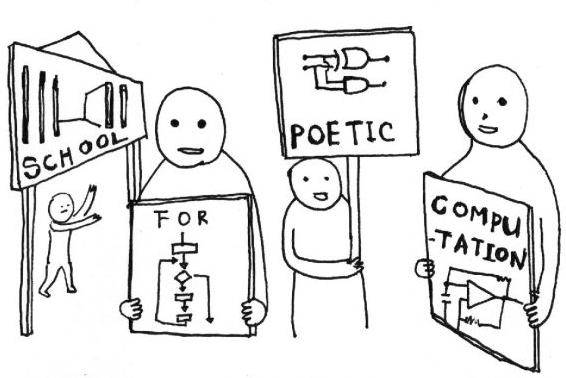 SCHOOL
FOR
POETIC
COMPU
-TATION